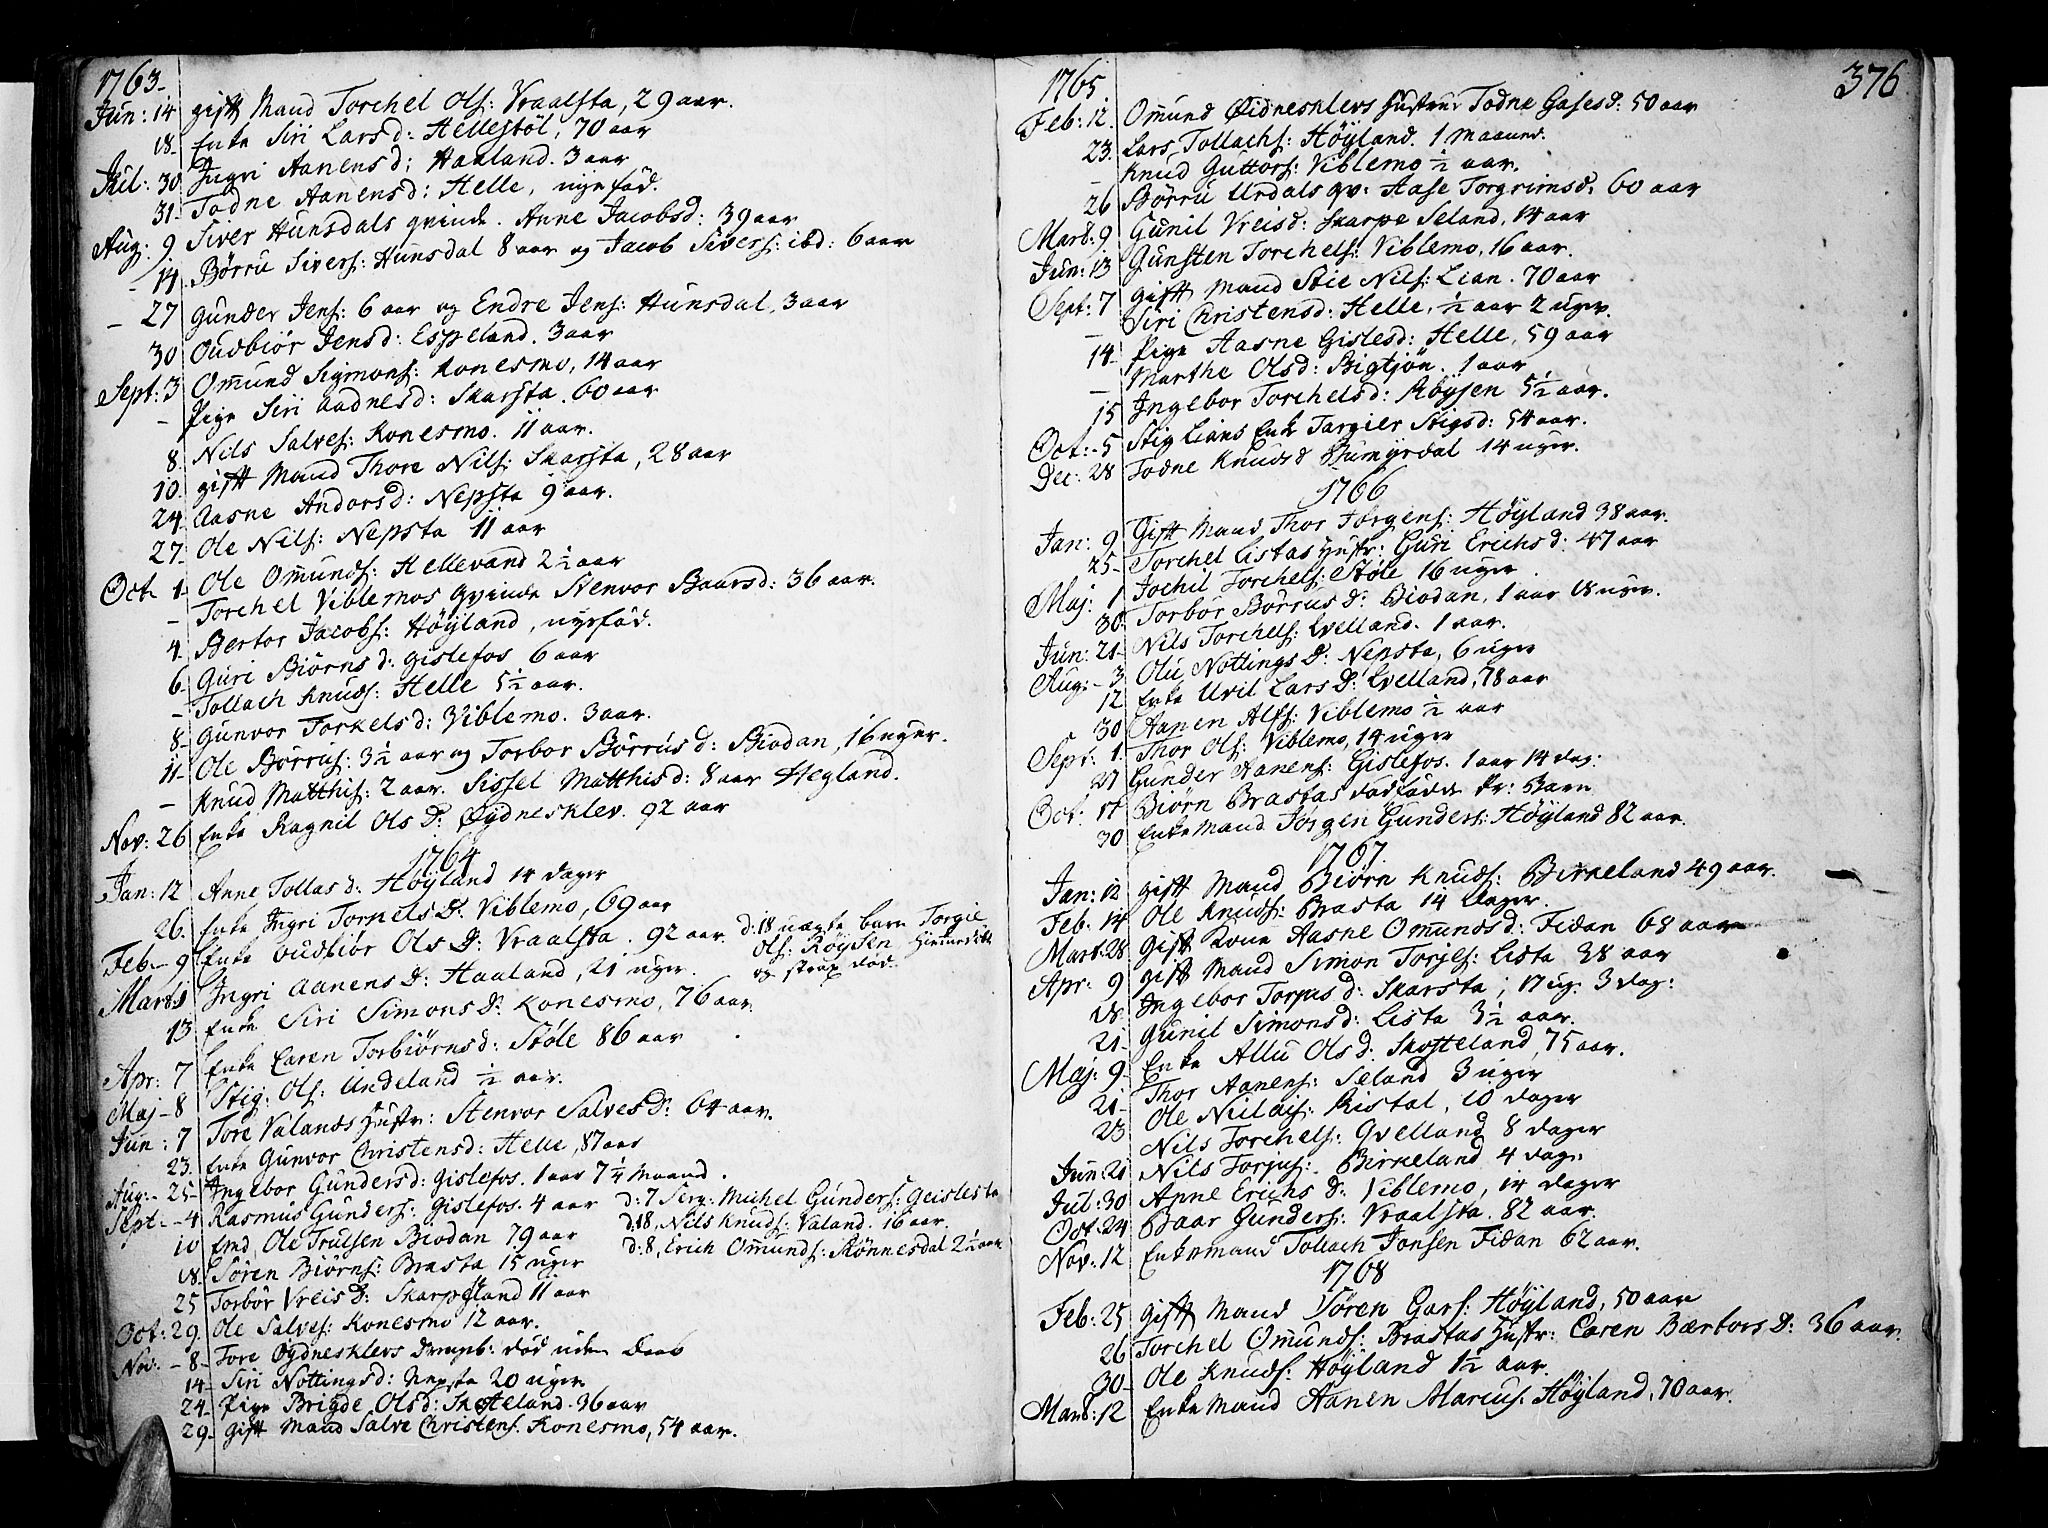 1763
Jun: 14 gift Mand Torchel Ols: Vraalsta, 29 aar.
18. Enke Siri Larsd: Hellestöl, 70 aar
Jul: 30 Ingri Aanensd: Haaland. 3 aar
31. Todne Aanensd: Helle, nye fød.
Aug: 9. Siver Hunsdals qvinde. Anne Jacobsd: 39 aar
- 14 Börru Sivers: Hunsdal 8 aar og Jacob Sivers: ibd: 6 aar
- 27 Gunder Jens: 6 aar og Endre Jens: Hunsdal, 3 aar
30 Oudbiör Jensd: Espeland. 3 aar
Sept: 3 Omund Sigmons: Konesmo, 14 aar
- Pige Siri Aadnesd: Skarsta. 60 aar
8. Nils Salves: Konesmo. 11 aar.
10. gift Mand Thore Nils: Skarsta, 28 aar
24. Aasne Andorsd: Nepsta 9 aar.
27. Ole Nils: Nepsta 11 aar
Oct. 1. Ole Omunds: Hellevand 2½ aar
- Torchel Viblemos Qvinde Stenvor Baarsd: 36 aar.
4. Bertor Jacobs: Höyland, nyefød.
6. Guri Biörnsd: Gislefos 6 aar
- Tollach Knuds: Helle 5½ aar.
8. Gunvor Torkelsd: Viblemo. 3 aar.
11. Ole Börrus: 3½ aar og Torbor Börrusd: Biodan, 16 uger.
- Knud Matthis: 2 aar. Sissel Matthisd: 8 aar Hegland.
Nov: 26 Enke Ragnil Olsd: Öydnesklev. 92 aar
1764
Jan: 12 Anne Tollasd: Höyland 14 dager
26. Enke Ingri Torpelsd: Viblemo, 69 aar
Feb: 9 Enke Oudbiör Olsd: Vraalsta. 92 aar. d: 18 uægte barn Torgie
Ols: Röysen
og strax død.
Mart: Ingri Aanensd: Haaland, 21 uger.
13. Enke Siri Simonsd: Konesmo, 76 aar.
Apr: 7 Enke Caren Torbiörnsd: Stöle 86 aar
Maj - 8 Stig: Ols: Undeland ½ aar.
Jun: 7 Tore Valands Hustr: Stenvor Salvesd: 64 aar.
23. Enke Gunvor Christensd: Helle, 87 aar
Aug: 25. Ingebor Gundersd: Gislefos. 1 aar 7¼ Maaned.
Sept: 4 Rasmus Gunders: Gislefos. 4 aar d: 7 Serg: Michel Gunders: Geislesta
d: 18, Nils Knuds: Valand. 16 aar.
10 Emd, Ole Trulsen Biodan 79 aar d: 8, Erich Omunds: Rönnesdal 2½ aar
18. Sören Biörns: Brasta 15 uger
25 Torbör Vreisd: Skarpsland 11 aar
Oct: 29. Ole Salves: Konesmo 12 aar.
Nov: - 8- Tore Öydnesklevs drengeb: død uden Daab
14- Siri Nottingsd: Nepsta 20 uger
24- Pige Brigde Olsd: Skofteland. 36 aar
29- gift Mand Salve Christens: Konesmo, 54 aar.
376
1765
Feb: 12. Omund Öidnesklevs Hustrue Todne Gasesd: 50 aar
23. Lars Tollachs: Höyland. 1 Maaned.
- Knud Guttors: Viblemo ½ aar.
26 Börru Urdals qv: Aase Torgrimsd: 60 aar
Mart: 9 Gunil Vreisd: Skarpe Seland, 14 aar
Jun: 13 Gunsten Torchels: Viblemo, 16 aar.
Sept: 7 gift Mand Stie Nils: Lian. 70 aar
Siri Christensd: Helle, ½ aar 2 uger.
14- Pige Aasne Gislesd: Helle, 59 aar
- Marthe Olsd: Bigtjön. 1 aar
15 Ingebor Torchelsd: Röysen 5½ aar.
Oct: 5 Stig Lians Enke Targier Stigsd: 54 aar.
Dec: 28 Todne Knudsd Humyrdal 14 uger.
1766
Jan: 9 Gift Mand Thor Jörgens: Höyland 38 aar.
25- Torchel Listas Hustr: Guri Erichsd: 47 aar
Maj: 1 Jochil Torchels: Stöle 16 uger
30. Torbor Börrusd: Biodan, 1 aar 18 uger.
Jun: 21- Nils Torchels: Qvelland. 1 aar.
Aug: - 3. Olu Nottingsd: Nepsta, 6 uger
12 Enke Uvil Larsd: Qvelland, 78 aar
30 Aanen Alfs: Viblemo ½ aar
Sept: 1. Thor Ols: Viblemo, 14 uger
27 Gunder Aanens: Gislefos. 1 aar 14 dag:
Oct: 17 Biörn Brastas dødfødde Barn
30 Enke Mand Jörgen Gunders: Höyland 82 aar.
1767.
Jan: 12 gift Mand Biörn Knuds: Birkeland 49 aar.
Feb: 14 Ole Knuds: Brasta 14 Dager.
Mart: 28. gift Kone Aasne Omundsd: Fidan 68 aar
Apr: 9 gift Mand Simon Torjes: Lista 38 aar
18. Ingebor Torpesd: Skarsta, 17 ug. 3 dag:
21. Gunil Simonsd: Lista 3½ aar.
Maj: 9. Enke Allu Olsd: Skofteland, 75 aar.
21- Thor Aanens: Seland 3 uger
23 Ole Niclais: Ristal, 10 dager
Nils Torchels: Qvelland 8 dager
Jun: 21 Nils Torjus: Birkeland 4 dag:
Jul: 30 Anne Erichsd: Viblemo, 14 dager
Oct: 24 Baar Gunders: Vraalsta. 82 aar.
Nov: 12 Enkemand Tollach Jonsen Fidan 62 aar.
1768
Feb: 25 gift Mand Sören Gars: Höyland, 50 aar
26 Torchel Omunds: Brastas Hustr: Caren Bærtorsd: 36 aar.
30- Ole Knuds: Höyland 1½ aar.
Mart: 12 Enke Mand Aanen Marcus: Höyland, 70 aar.